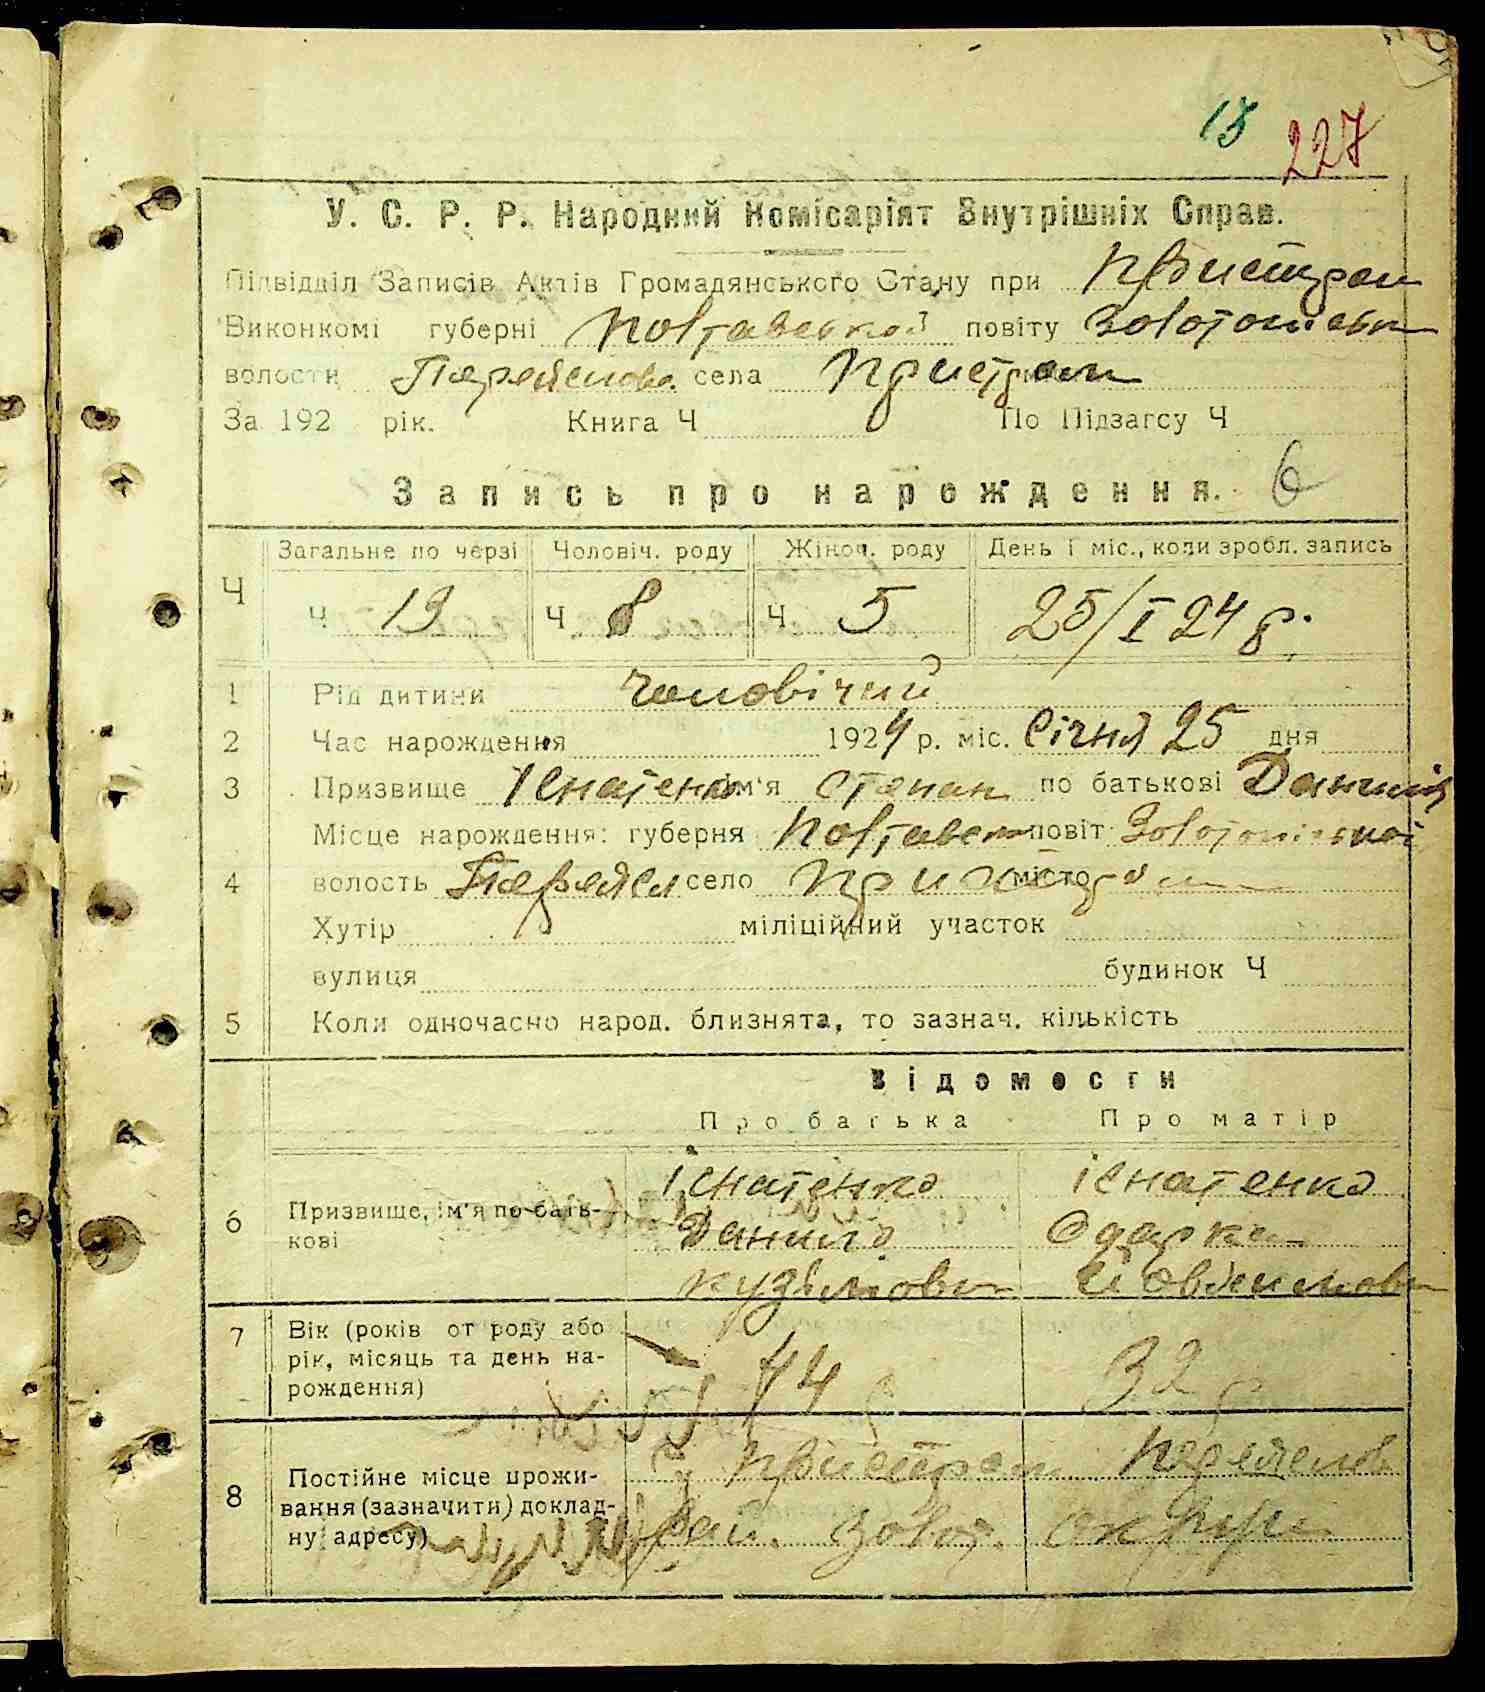 13 227
У. С. Р. Р. Народний Комісаріят Внутрішніх Справ.
Підвідділ Записів Актів Громадянського Стану при Пристром
Виконкомі губерні Полтавської повіту Золотоніськ
волости Переяслов. села Пристром
За 192 рік. Книга Ч По Підзагсу Ч
Запись про нарождення. 6
Ч Загальне по черзі Чоловіч. роду Жіноч. роду День і міс., коли зробл. запись
Ч 13 Ч 8 Ч 5 25/I 24 р.
1 Рід дитини чоловічий
2 Час нарождення 1924 р. міс. Січня 25 дня
3 Призвище Ігнатенко ім'я Степан по батькові Данилів
Місце нарождення: губерня Полтавськ повіт Золотоніської
4 волость Переясл село Пристром місто
Хутір міліційний участок
вулиця будинок Ч
5 Коли одночасно народ. близнята, то зазнач. кількість
Відомости
Про батька Про матір
6 Призвище, ім'я по бать-
кові
Ігнатенко Ігнатенко
Данило Одарка
Кузьмович
7 Вік (років от роду або
рік, місяць та день на-
рождення)
44 32 р
8 Постійне місце прожи-
вання (зазначити) доклад-
ну адресу)
Пристром Переяслов
рай. Золот. округи